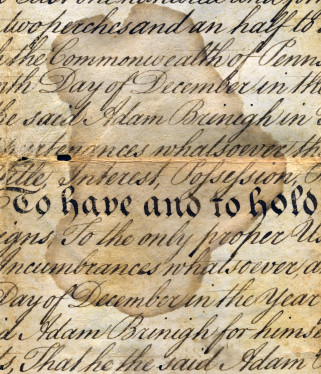 two perches and an half to
the Commonwealth of Penns
nth Day of December in the
he said Adam Brinigh in
urtenances whatsoever th
itle, Interest, Possession,
To have and to hold
igns To the only proper Us
Incumbrances whatsoever, a
Day of December in the Year
d Adam Brinigh for himse
ts, That he the said Adam